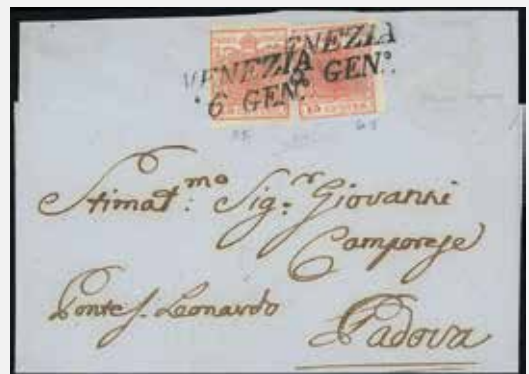 VENEZIA
6 GEN.º
VENEZIA
GEN.º
15 CENTES
Stimat:mo Sig:r Giovanni
Camporese
Ponte S. Leonardo
Padova